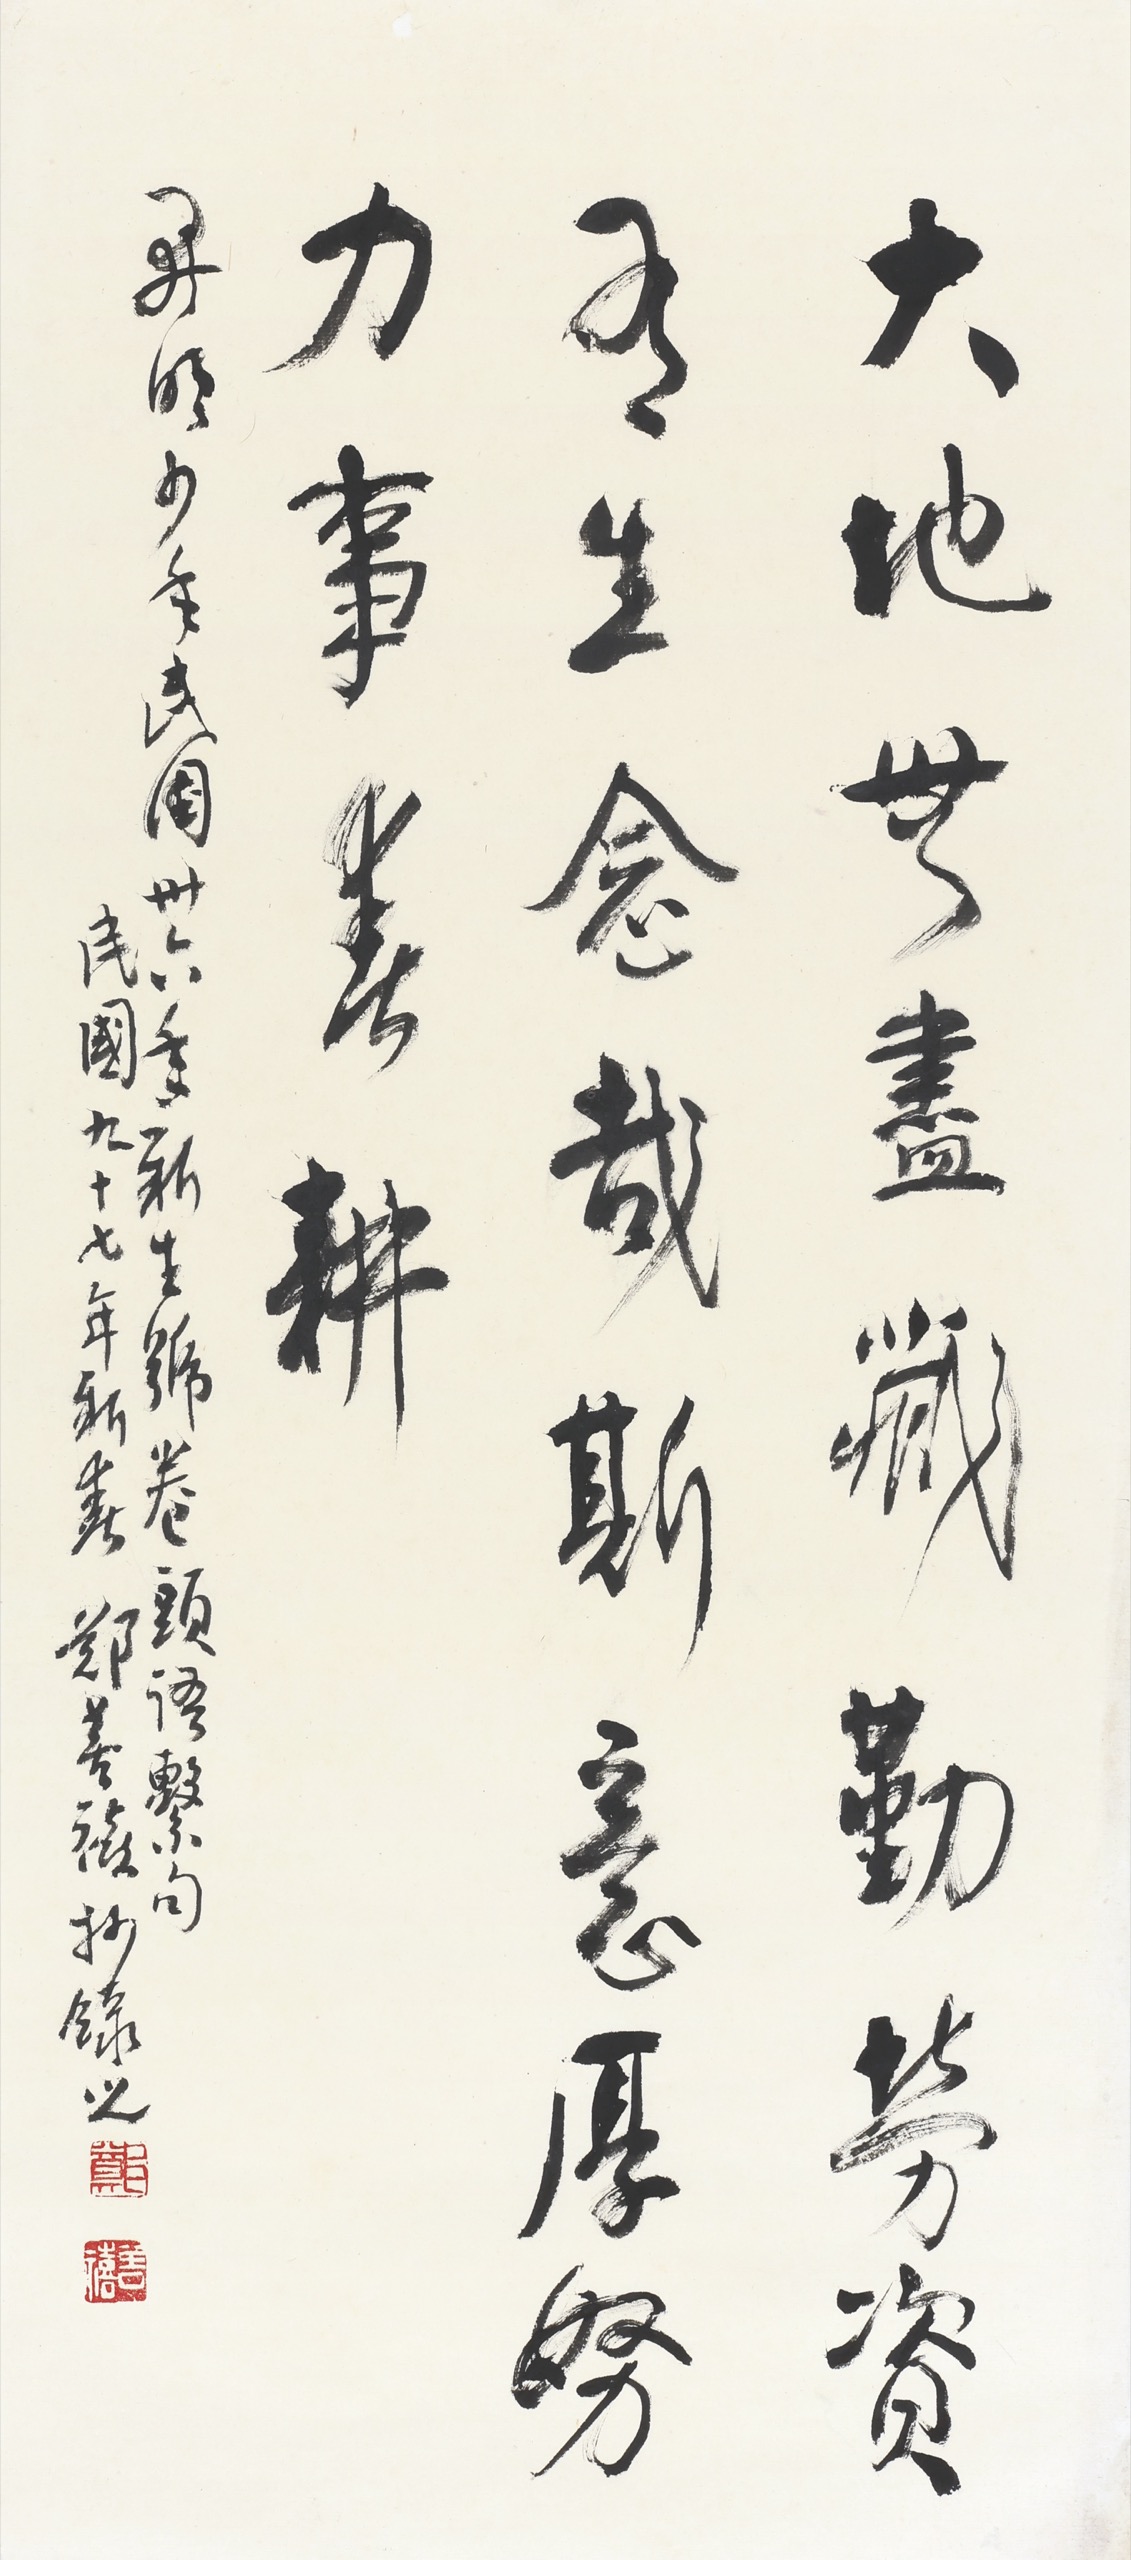 大地無盡藏勤勞資
有生念哉斯意厚努
力事春耕
開明少年民國卅六年新生號卷頭語繫句
民國九十七年新春 鄭善禧抄錄之
鄭
善禧